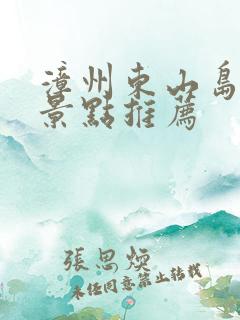 漳州东山島
景點推薦
張思煥
未任同意禁止轉載